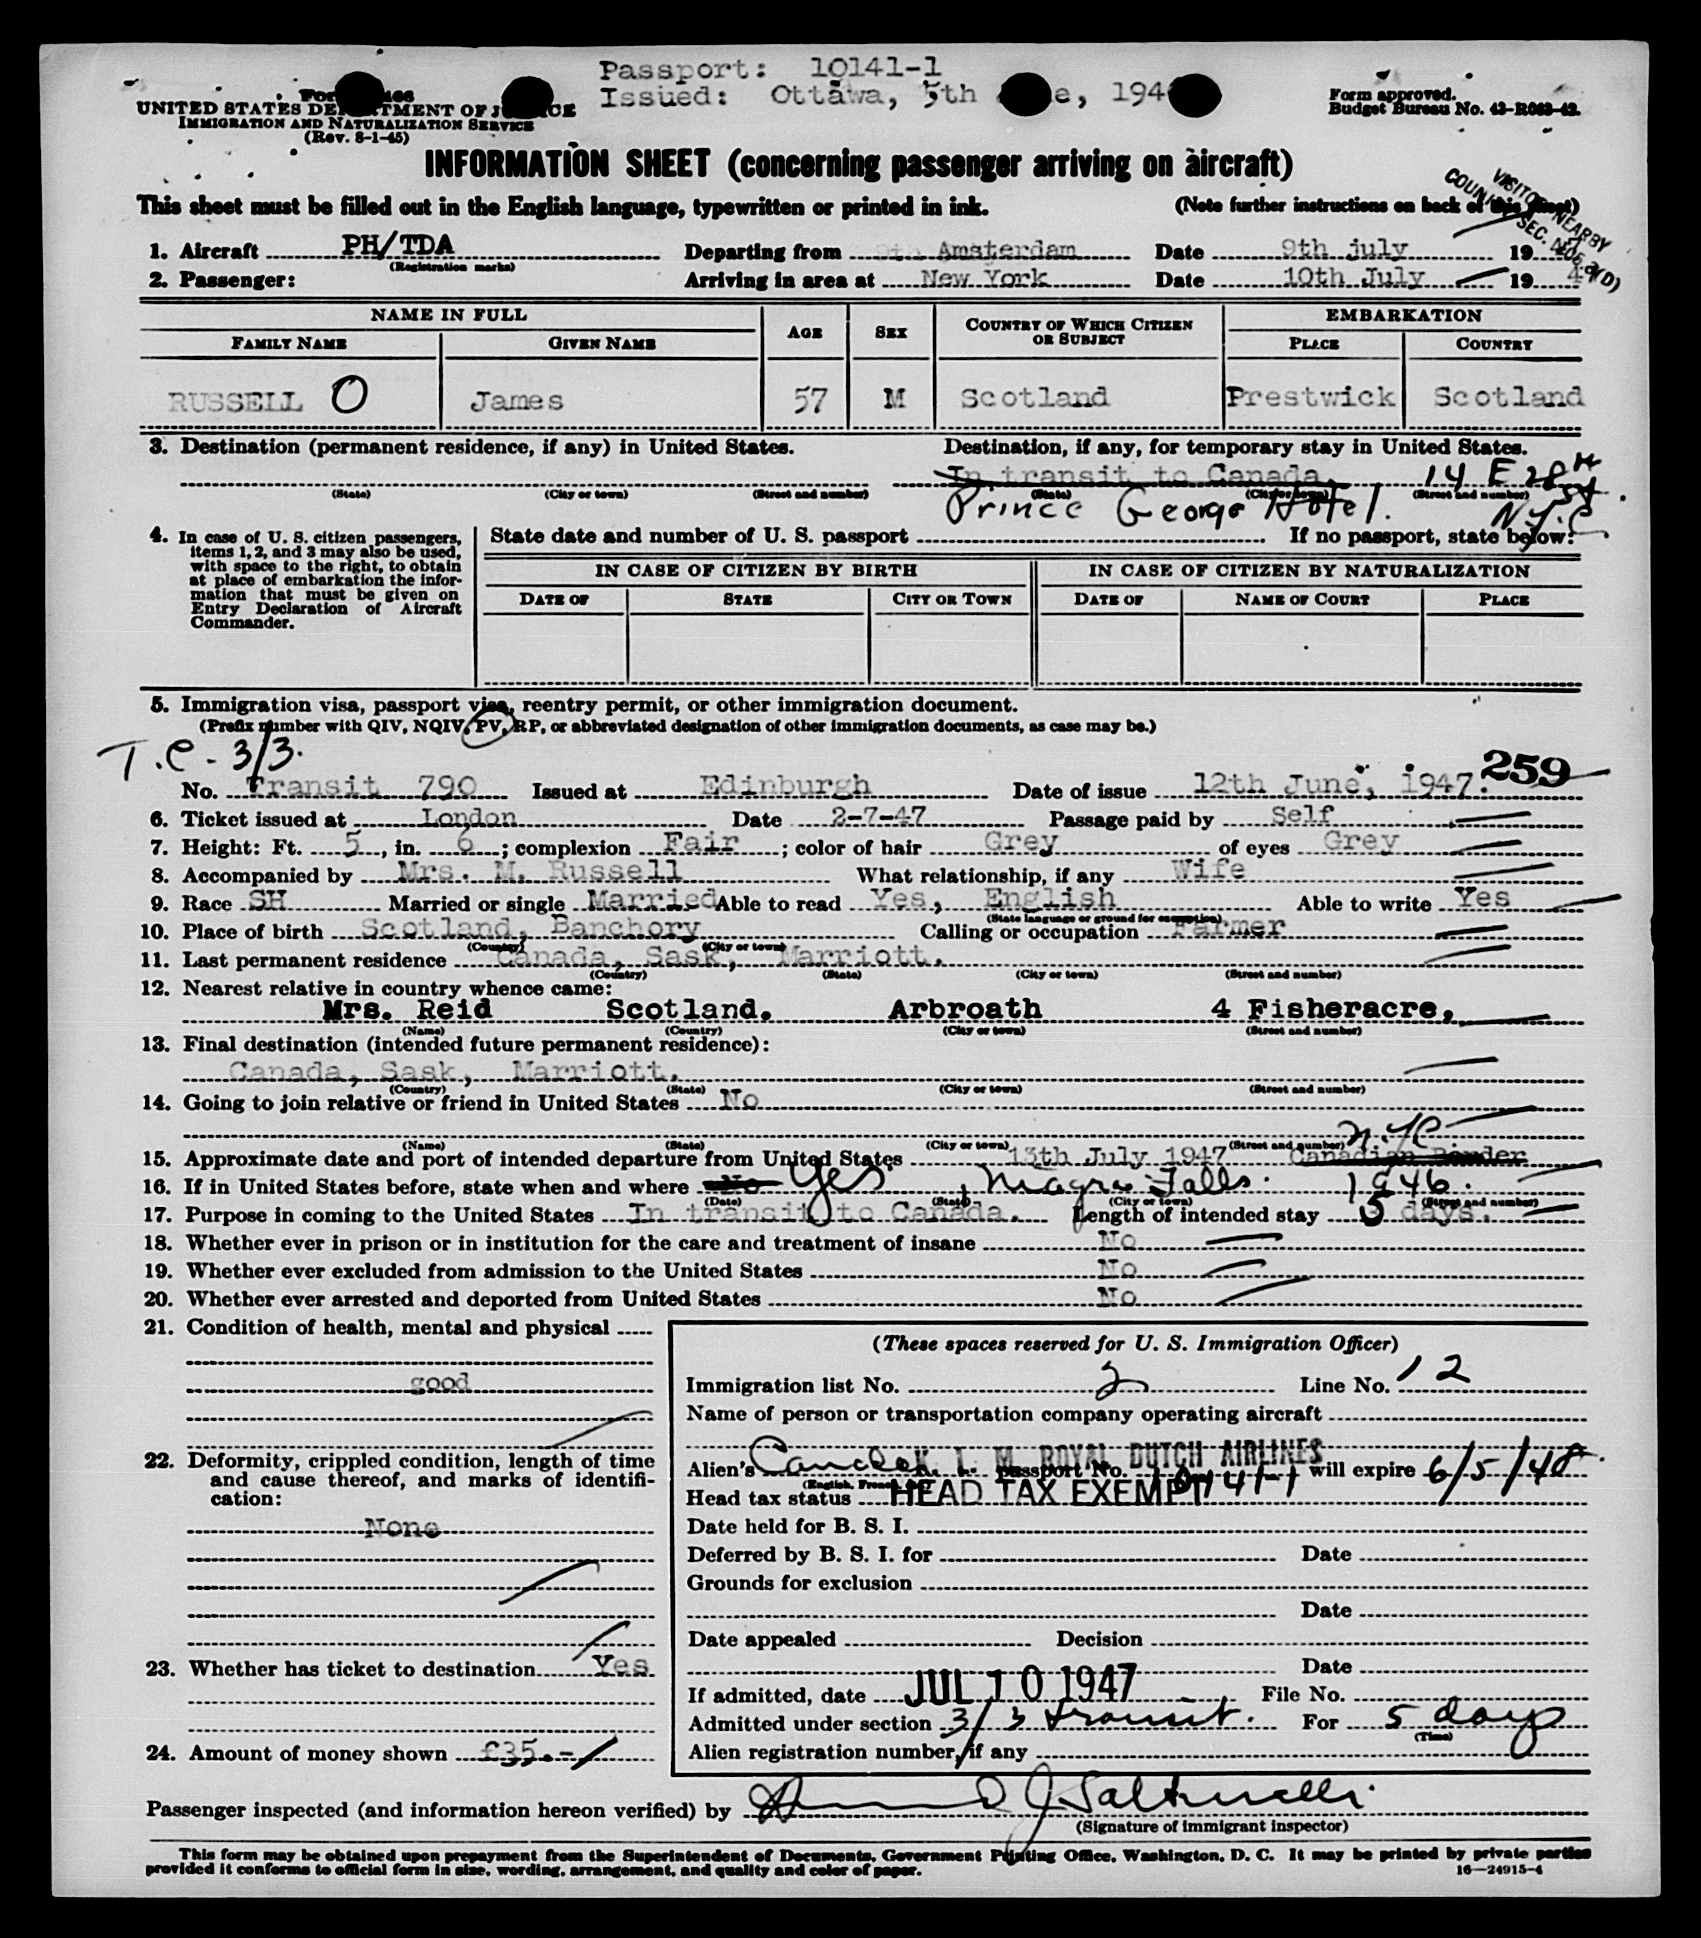 Passport: 10141-1
Issued: Ottawa, 5th 194
UNITED STATES DEPARTMENT OF JUSTICE
IMMIGRATION AND NATURALIZATION SERVICE
(Rev. 8-1-45)
Form approved.
Budget Bureau No. 43-R063-42.
INFORMATION SHEET (concerning passenger arriving on aircraft)
This sheet must be filled out in the English language, typewritten or printed in ink. (Note further instructions on back of this sheet)
1. Aircraft PH/TDA Departing from Amsterdam Date 9th july 19
(Registration marks)
2. Passenger: Arriving in area at New York Date 10th July 19 47
NAME IN FULL AGE SEX COUNTRY OF WHICH CITIZEN OR SUBJECT EMBARKATION
FAMILY NAME GIVEN NAME PLACE COUNTRY
RUSSELL O James 57 M Scotland Prestwick Scotland
3. Destination (permanent residence, if any) in United States. Destination, if any, for temporary stay in United States.
In transit to Canada, 14 E 28th St.
(State) (City or town) (Street and number) (State) (City or town) (Street and number)
Prince George Hotel. N.Y.C
4. In case of U. S. citizen passengers, items 1, 2, and 3 may also be used, with space to the right, to obtain at place of embarkation the information that must be given on Entry Declaration of Aircraft Commander.
State date and number of U. S. passport If no passport, state below:
IN CASE OF CITIZEN BY BIRTH IN CASE OF CITIZEN BY NATURALIZATION
DATE OF STATE CITY OR TOWN DATE OF NAME OF COURT PLACE
5. Immigration visa, passport visa, reentry permit, or other immigration document.
(Prefix number with QIV, NQIV, PV, RP, or abbreviated designation of other immigration documents, as case may be.)
T.C - 3/3. 259
No. Transit 790 Issued at Edinburgh Date of issue 12th June, 1947.
6. Ticket issued at London Date 2-7-47 Passage paid by Self
7. Height: Ft. 5, in. 6; complexion Fair; color of hair Grey of eyes Grey
8. Accompanied by Mrs. M. Russell What relationship, if any Wife
9. Race SH Married or single Married Able to read Yes, English Able to write Yes
(State language or ground for exemption)
10. Place of birth Scotland, Banchory Calling or occupation Farmer
(Country) (City or town)
11. Last permanent residence Canada, Sask, Marriott.
(Country) (State) (City or town) (Street and number)
12. Nearest relative in country whence came:
Mrs. Reid Scotland. Arbroath 4 Fisheracre,
(Name) (Country) (City or town) (Street and number)
13. Final destination (intended future permanent residence):
Canada, Sask, Marriott.
(Country) (State) (City or town) (Street and number)
14. Going to join relative or friend in United States No
(Name) (State) (City or town) (Street and number) N.Y.C.
15. Approximate date and port of intended departure from United States 13th July 1947 Canadian Border
16. If in United States before, state when and where No Yes, Niagra Falls. 1946.
(Date) (State) (City or town) (Street and number)
17. Purpose in coming to the United States In transit to Canada. Length of intended stay 5 days.
18. Whether ever in prison or in institution for the care and treatment of insane No
19. Whether ever excluded from admission to the United States No
20. Whether ever arrested and deported from United States No
21. Condition of health, mental and physical
good
22. Deformity, crippled condition, length of time and cause thereof, and marks of identification:
None
23. Whether has ticket to destination Yes
24. Amount of money shown £35.-
(These spaces reserved for U. S. Immigration Officer)
Immigration list No. 2 Line No. 12
Name of person or transportation company operating aircraft
K. L. M. ROYAL DUTCH AIRLINES
Alien's passport No. 10141-1 will expire 6/5/48.
Head tax status HEAD TAX EXEMPT
Date held for B. S. I.
Deferred by B. S. I. for Date
Grounds for exclusion
Date
Date appealed Decision
Date
If admitted, date JUL 10 1947 File No.
Admitted under section 3/3 transit. For 5 days
(Time)
Alien registration number, if any
Passenger inspected (and information hereon verified) by
(Signature of immigrant inspector)
This form may be obtained upon prepayment from the Superintendent of Documents, Government Printing Office, Washington, D. C. It may be printed by private parties
provided it conforms to official form in size, wording, arrangement, and quality and color of paper.
16—24915-4